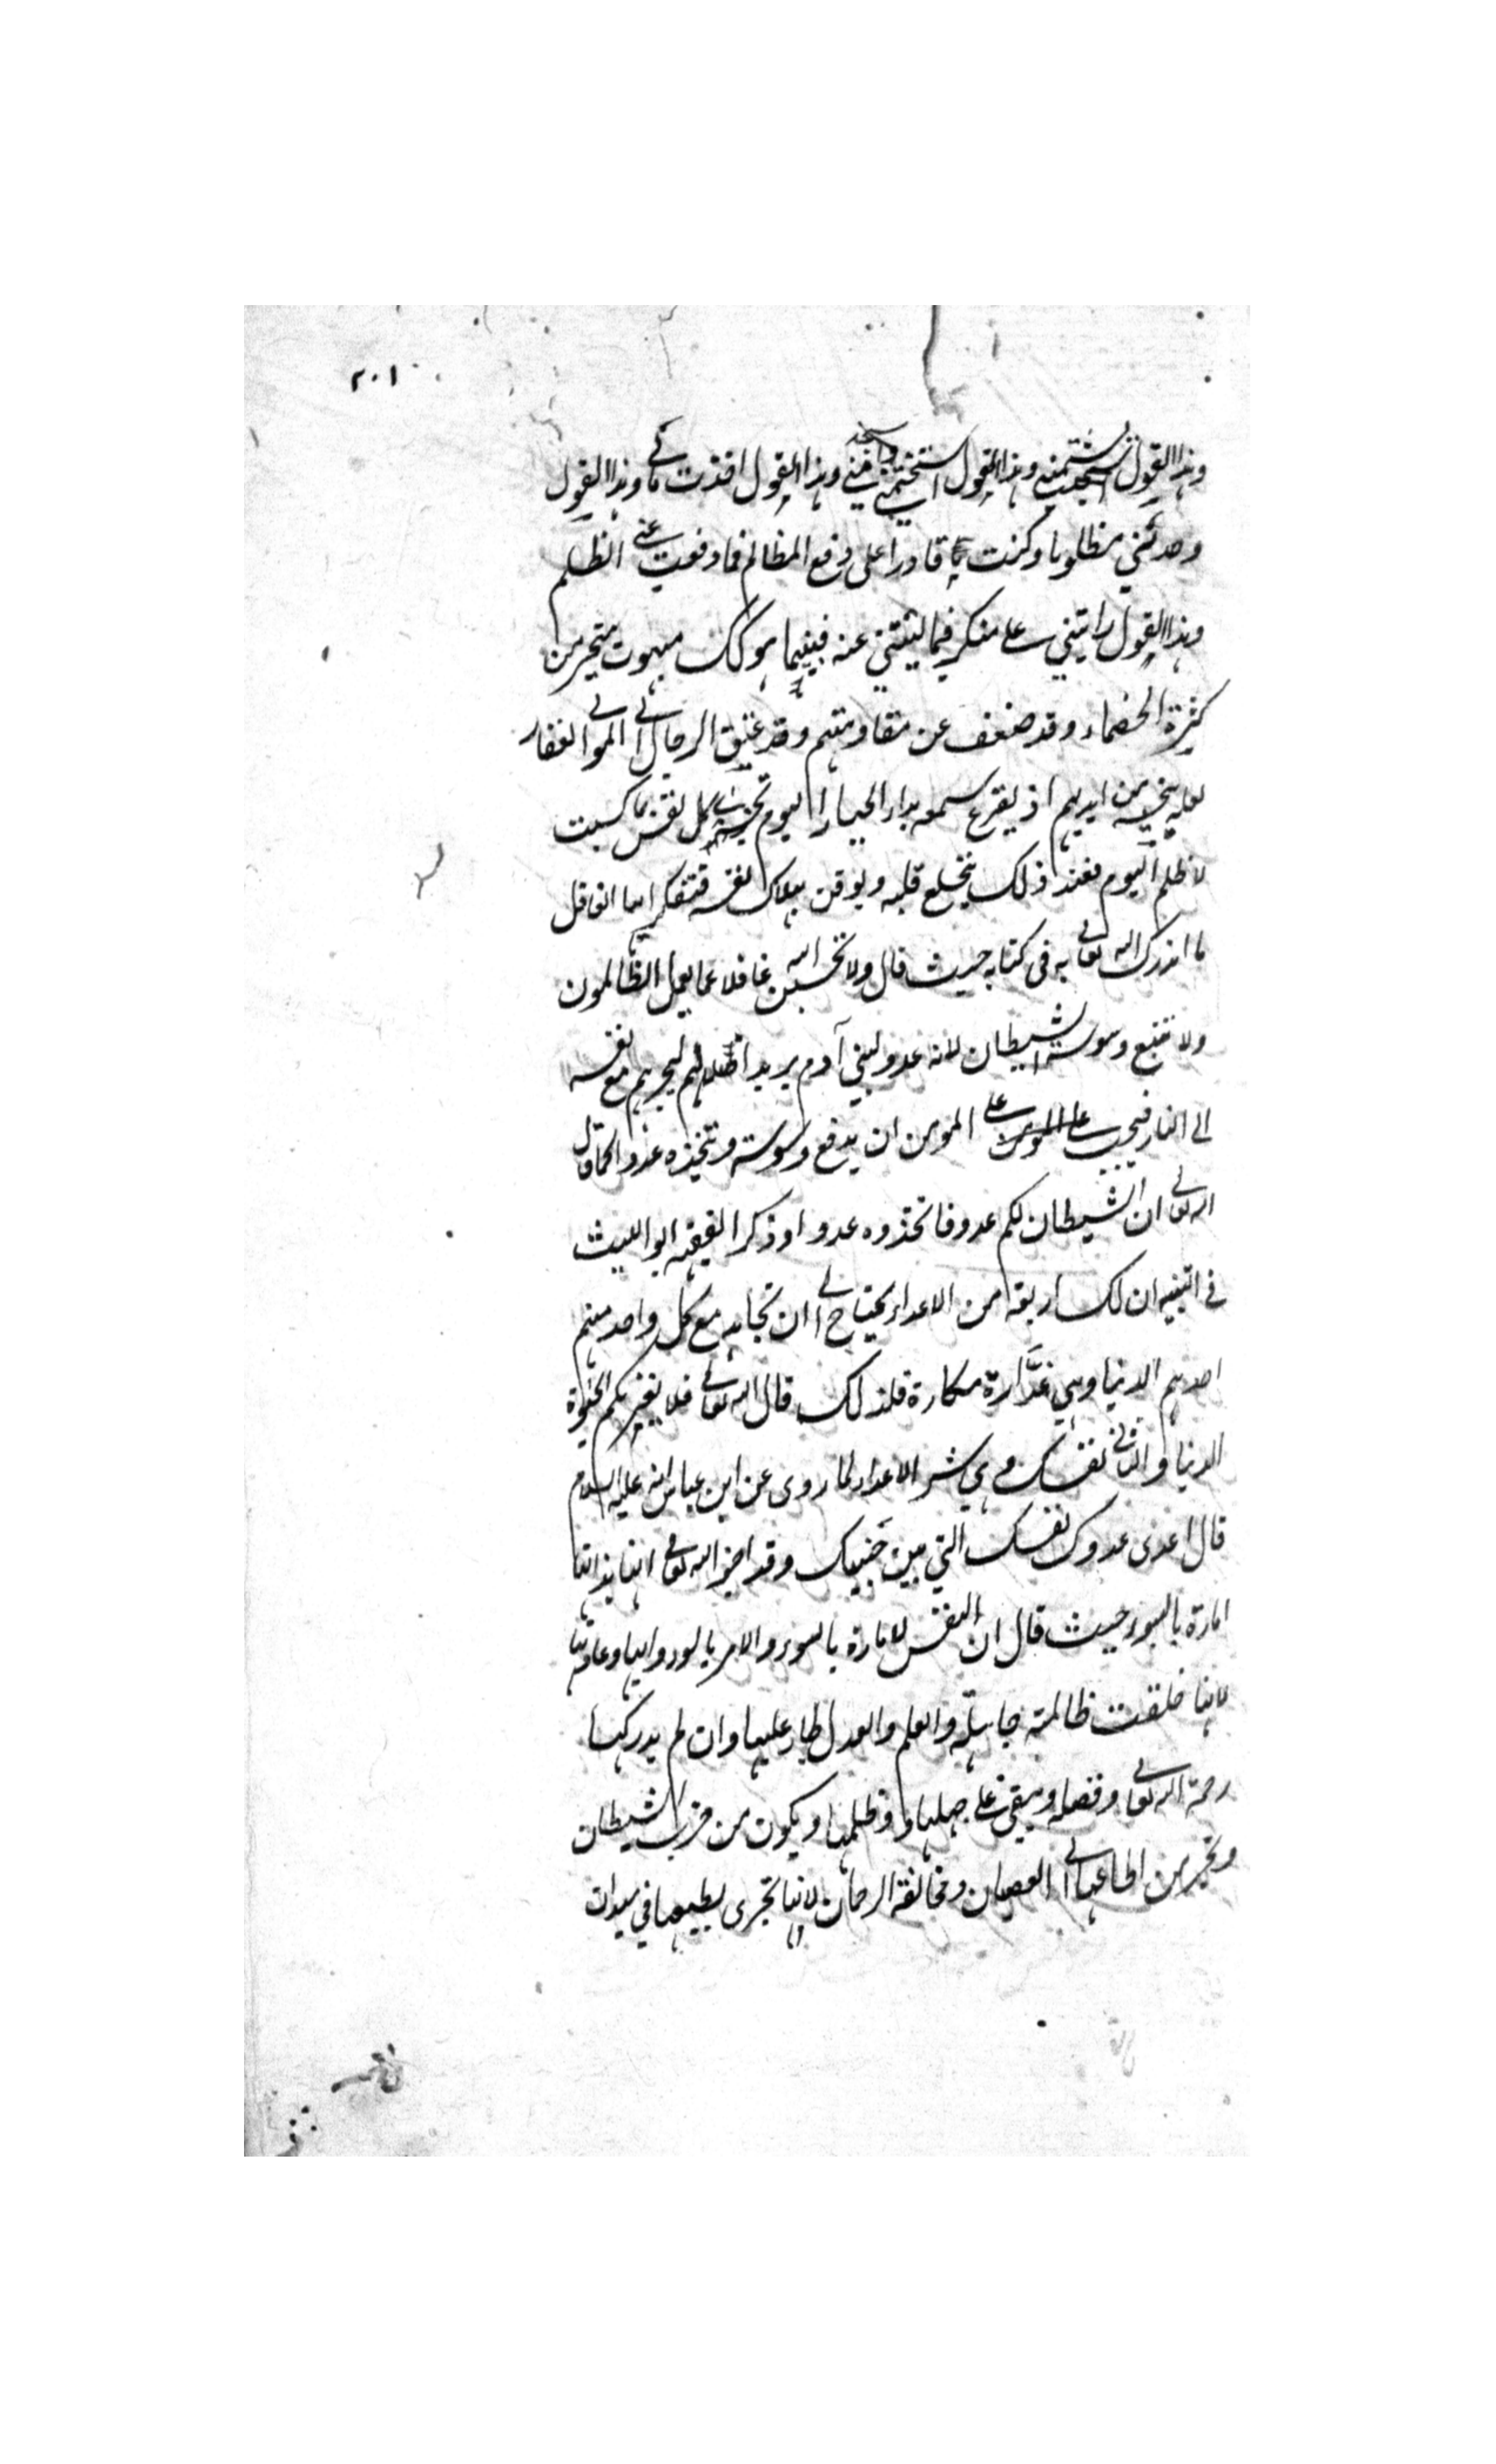 ٢٠١
وهذا القول شتمني وهذا القول وهذا القول اخذت مالي وهذا القول
وجدتني مظلوما وكنت قادرا على دفع المظالم فما دفعت عني الظلم
وهذا القول رايتني على منكر فما نهيتني عنه فبينما هو كذلك مبهوت متحير من
كثرة الخصماء وقد ضعف عن مقاومتهم وقد عنق الرجا الى المولى الغفار
لعله ينجيه من ايديهم اذ يقرع سمعه نداء الجبار اليوم تجزى كل نفس بما كسبت
لا ظلم اليوم فعند ذلك ينخلع قلبه ويوقن بهلاك نفسه فتفكر ايها الغافل
ما انذرك الله تعالى به في كتابه حيث قال ولا تحسبن الله غافلا عما يعمل الظالمون
ولا تتبع وسوسة الشيطان لانه عدو لبني آدم يريد اضلالهم ليجرهم مع نفسه
الى النار فيجب على المؤمن على المومن ان يدفع وسوسته ويتخذه عدوا كما قال
الله تعالى ان الشيطان لكم عدو فاتخذوه عدوا وذكر الفقيه ابو الليث
في التنبيه ان لك اربعة من الاعداء يحتاج الى ان تجاهد مع كل واحد منهم
احدهم الدنيا وهي غدَّارة مكارة فلذلك قال الله تعالى فلا يغرنكم الحيوة
الدنيا والثاني نفسك وهي شر الاعداء لما روى عن ابن عباس انه عليه السلام
قال اعدى عدوك نفسك التي بين جنبيك وقد اخبر الله تعالى انها بذاتها
امارة بالسوء حيث قال ان النفس لامارة بالسوء والامر بالسوء دابها وعادتها
لانها خلقت ظالمة جاهلة والعلم والعدل طار عليها وان لم يدركها
رحمة الله تعالى وفضله ويبقى على جهلها وظلمها ويكون من حزب الشيطان
من الطاعة الى العصيان ومخالفة الرحمان لانها تجرى بطبعها في ميدان